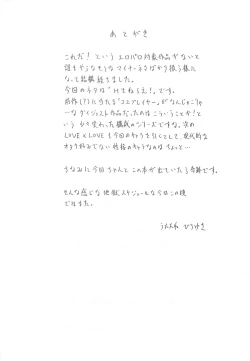 あとがき
これだ！という エロパロ対象作品がないと
誰もやらなそうなマイナーネタばかり扱う様に
なって結構経ちました。
今回のネタは"はねえ！"です。
前作(?)に当たる"コスプレイヤー"がなんじゃこりゃ
ーなダイジェスト作品だったのはこういうことか！と
いう わりと変わった構成のシリーズですな。次の
LOVE×LOVEも今回のキャラを引くとして、現代的な
オタク好みでない 性格のキャラなのはちょっと…
ちなみに今回ちゃんとこの本が出ていたら奇跡です。
そんな感じな 地獄スケジュールな今日この頃
でした。
うたたね ひろゆき